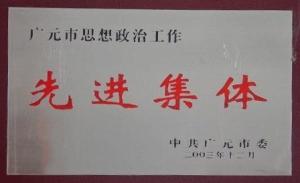 广元市思想政治工作
先进集体
中共广元市委
二00三年十二月